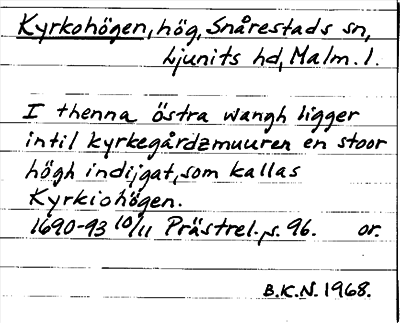 Kyrkohögen, hög, Snårestads sn,
Ljunits hd, Malm. l.
I thenna östra wangh ligger
intil kyrkegårdzmuuren en stoor
högh indijgat, som kallas
Kyrkiohögen.
1690-93 10/11 Prästrel. s. 96. or.
B.K.N. 1968.